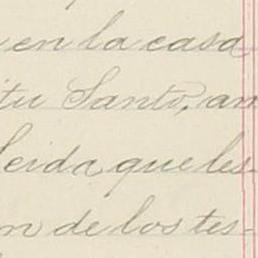 en la casa
itu Santo, an
leida que les-
n de los tes-